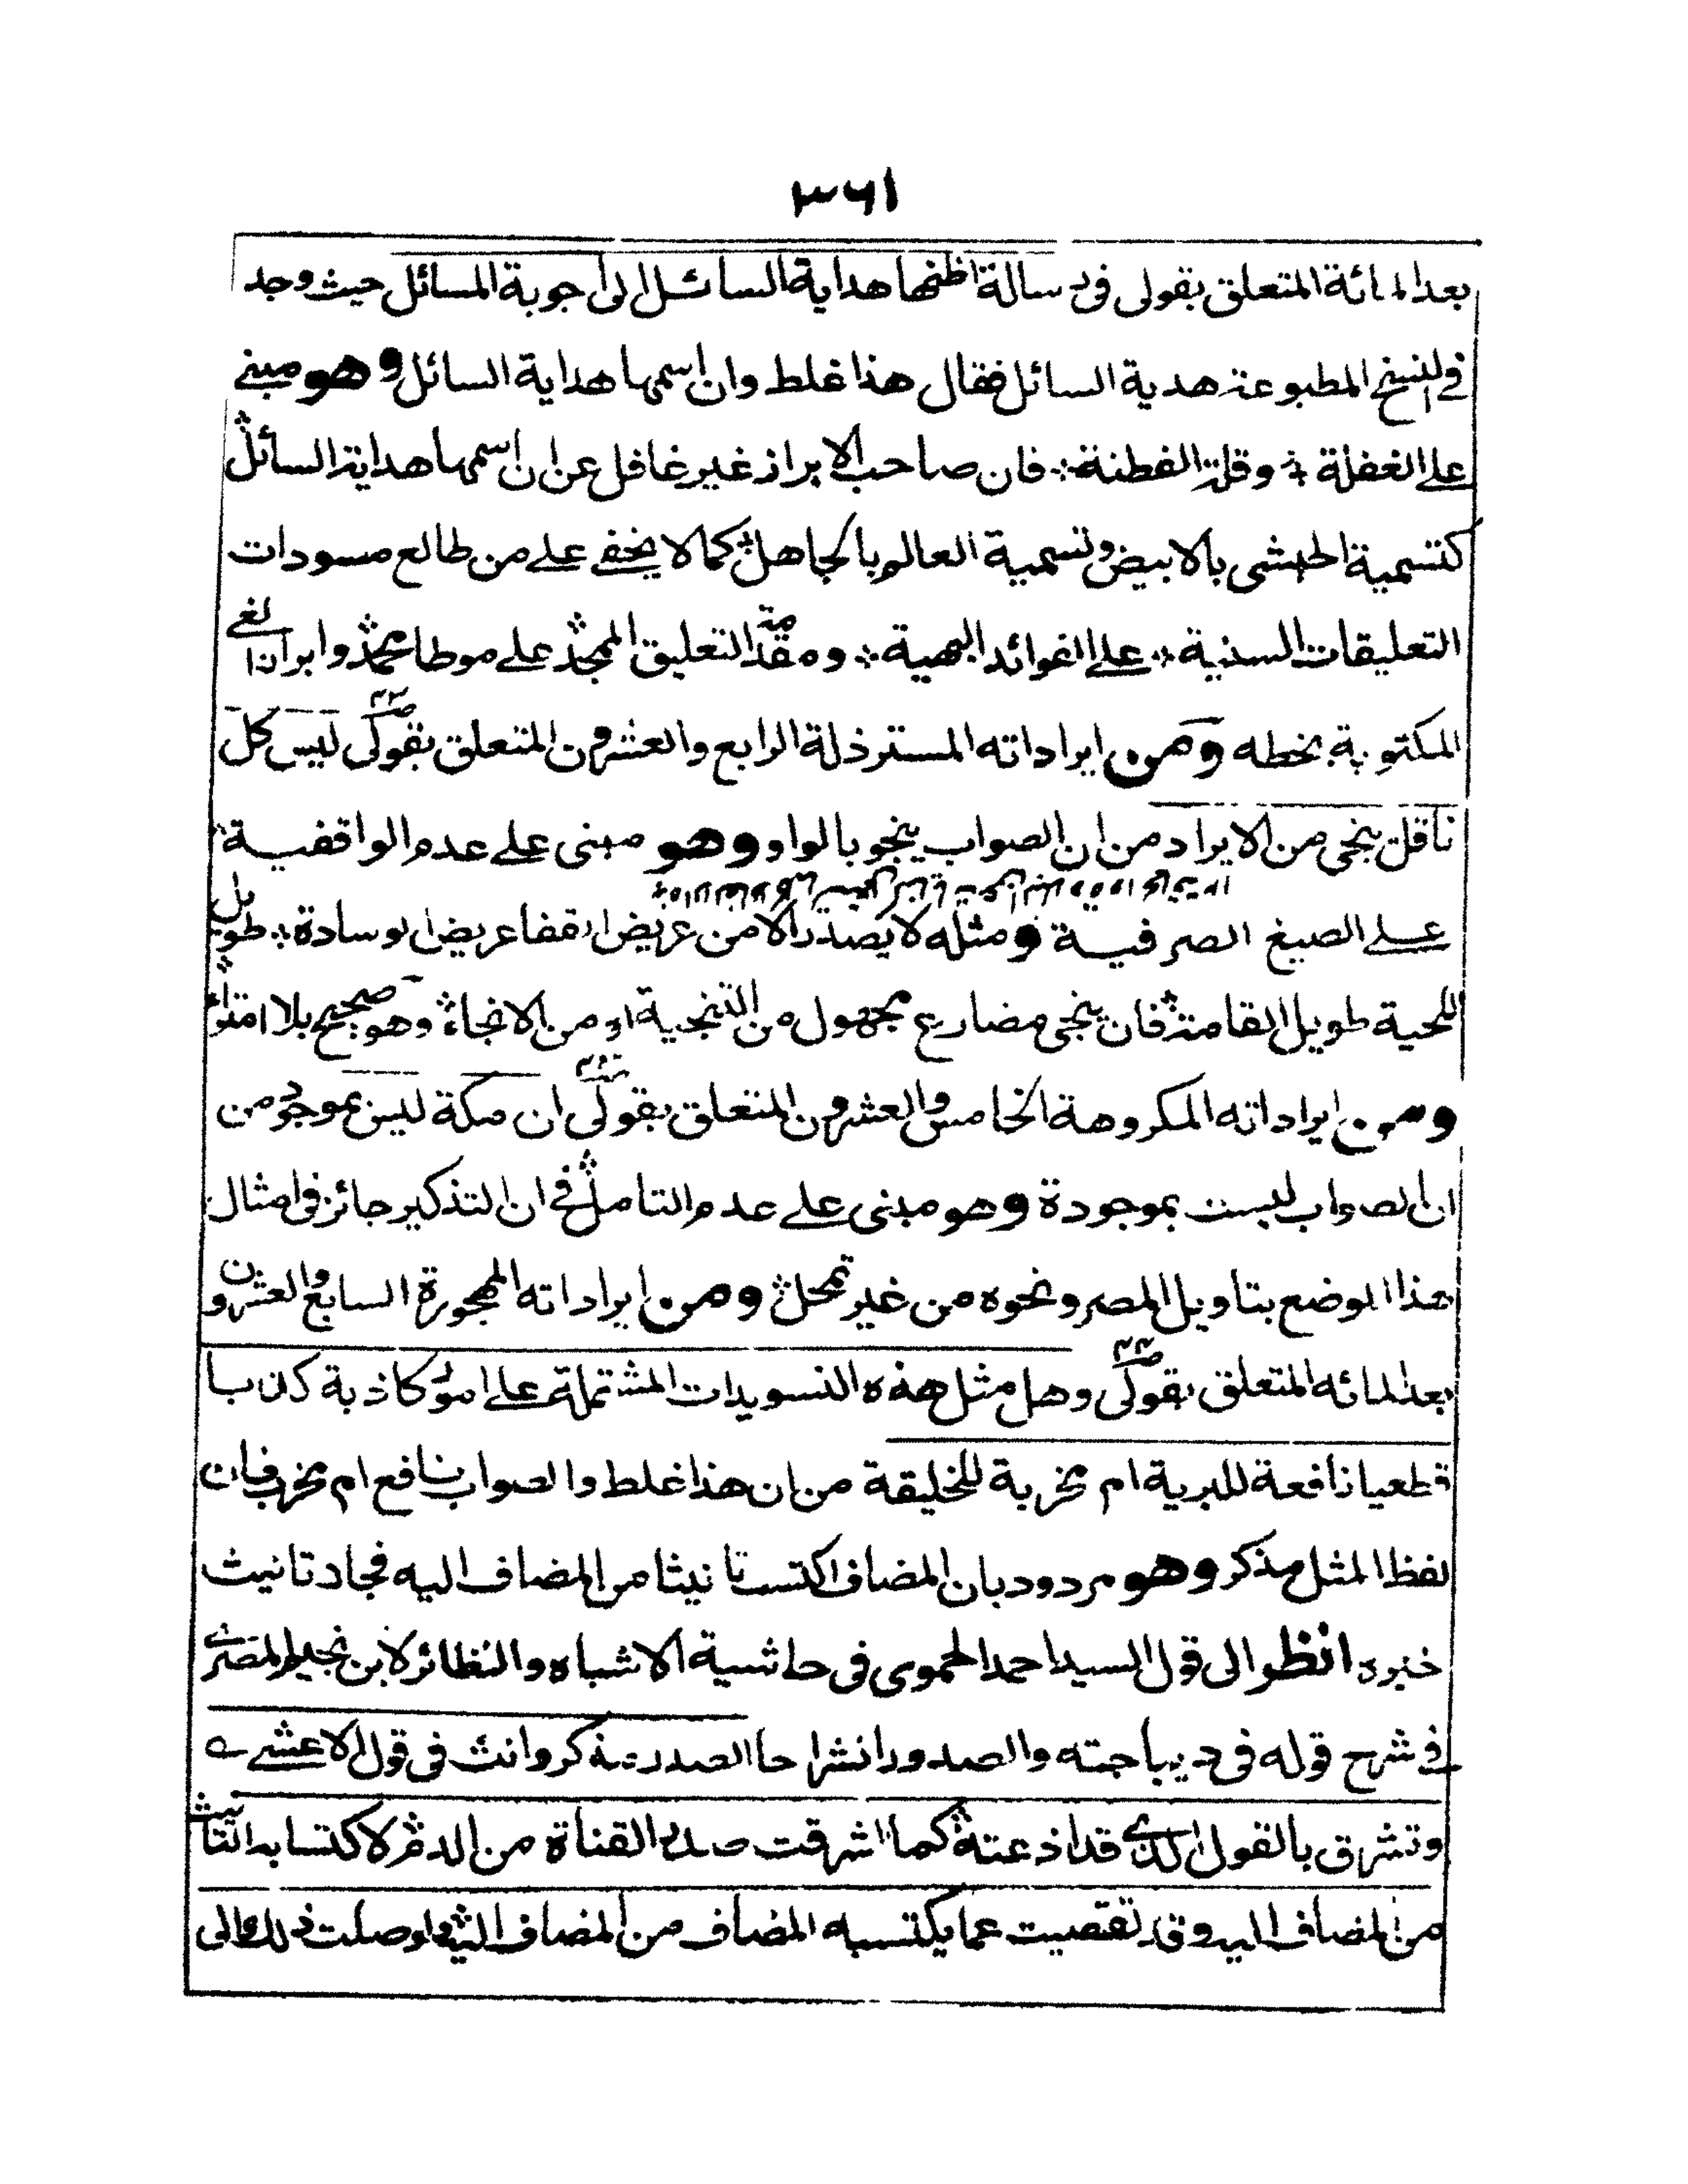 ٣٦١
بعد المائة المتعلق بقولى فى رسالة اظنها هداية السائل الى اجوبة المسائل حيث وجد
فى النسخ المطبوعة هدية السائل فقال هذا غلط وان اسمها هداية السائل وهو مبنے
على الغفلة ؞ وقلة الفطنة ؞ فان صاحب الابراز غير غافل عن ان اسمها هداية السائل ؞
كتسمية الحبشى بالابيض وتسمية العالم بالجاهل ؞ كما لا يخفے علے من طالع مسودات
التعليقات السنية ؞ علے الفوائد البهية ؞ ومقدمة التعليق الممجد ؞ علے موطا محمد ؞ وابراز الغے
المكتوبة بخطه ومن ايراداته المسترذلة الرابع والعشرون المتعلق بقولى ليس كل
ناقل ينجى من الايراد من ان الصواب ينجو بالواو وهو مبنى علے عدم الواقفية ؞
علے الصيغ الصرفية ومثله لا يصدر الا من عريض القفا عريض الوسادة ؞ طويل
اللحية طويل القامة ؞ فان ينجى مضارع مجهول من التنجية او من الانجاء ؞ وهو صحيح بلا امتراء ؞
ومن ايراداته المكروهة الخامس والعشرون المتعلق بقولى ان مكة ليس بموجود من
ان الصواب ليست بموجودة وهو مبنى علے عدم التامل ؞ فى ان التذكير جائز فى امثال
هذا الموضع بتاويل المصر ونحوه من غير تمحل ؞ ومن ايراداته المهجورة السابع والعشرون
بعد المائه المتعلق بقولى وهل مثل هذه التسويدات المشتملة علے امور كاذبة كذبا
قطعيا نافعة للبرية ام مخربة للخليقة من ان هذا غلط والصواب نافع ام مخرب فان
لفظ المثل مذكر وهو مردود بان المضاف اكتسب تانيثا من المضاف اليه فجاد تانيث
خبره انظر الى قول السيد احمد الحموى فى حاشية الاشباه والنظائر لابن نجيم المصرے
فى شرح قوله فى ديباجته والصدور انشراحا الصدر يذكر وانث فى قول الاعشے
وتشرق بالقول الذے قد اذعته ؞ كما اشرقت صدر القناة من الدم ؞ لاكتسابه التانيث
من المضاف اليه وقد تقصيت عما يكتسبه المضاف من المضاف اليه اوصلت ذلك الى